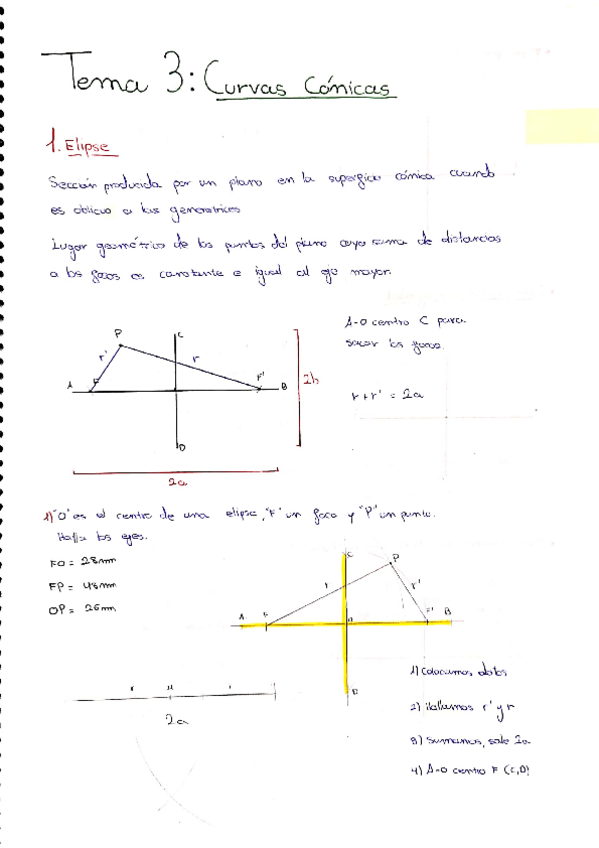 Tema 3: Curvas Cónicas
1. Elipse
Sección producida por un plano en la superficie cónica cuando
es oblicuo a las generatrices
Lugar geométrico de los puntos del plano cuya suma de distancias
a los focos es constante e igual al eje mayor.
A-O centro C para
sacar los focos.
r + r' = 2a
P
C
r'
r
A
F
F'
B
2b
D
2a
1) "O" es el centro de una elipse, "F" un foco y "P" un punto.
Halla los ejes.
FO = 28mm
FP = 48mm
OP = 26mm
C
P
r
r'
A
F
F'
B
2a
1) Colocamos datos
2) Hallamos r' y r
3) Sumamos, sale 2a
4) A-O centro F (C,D)